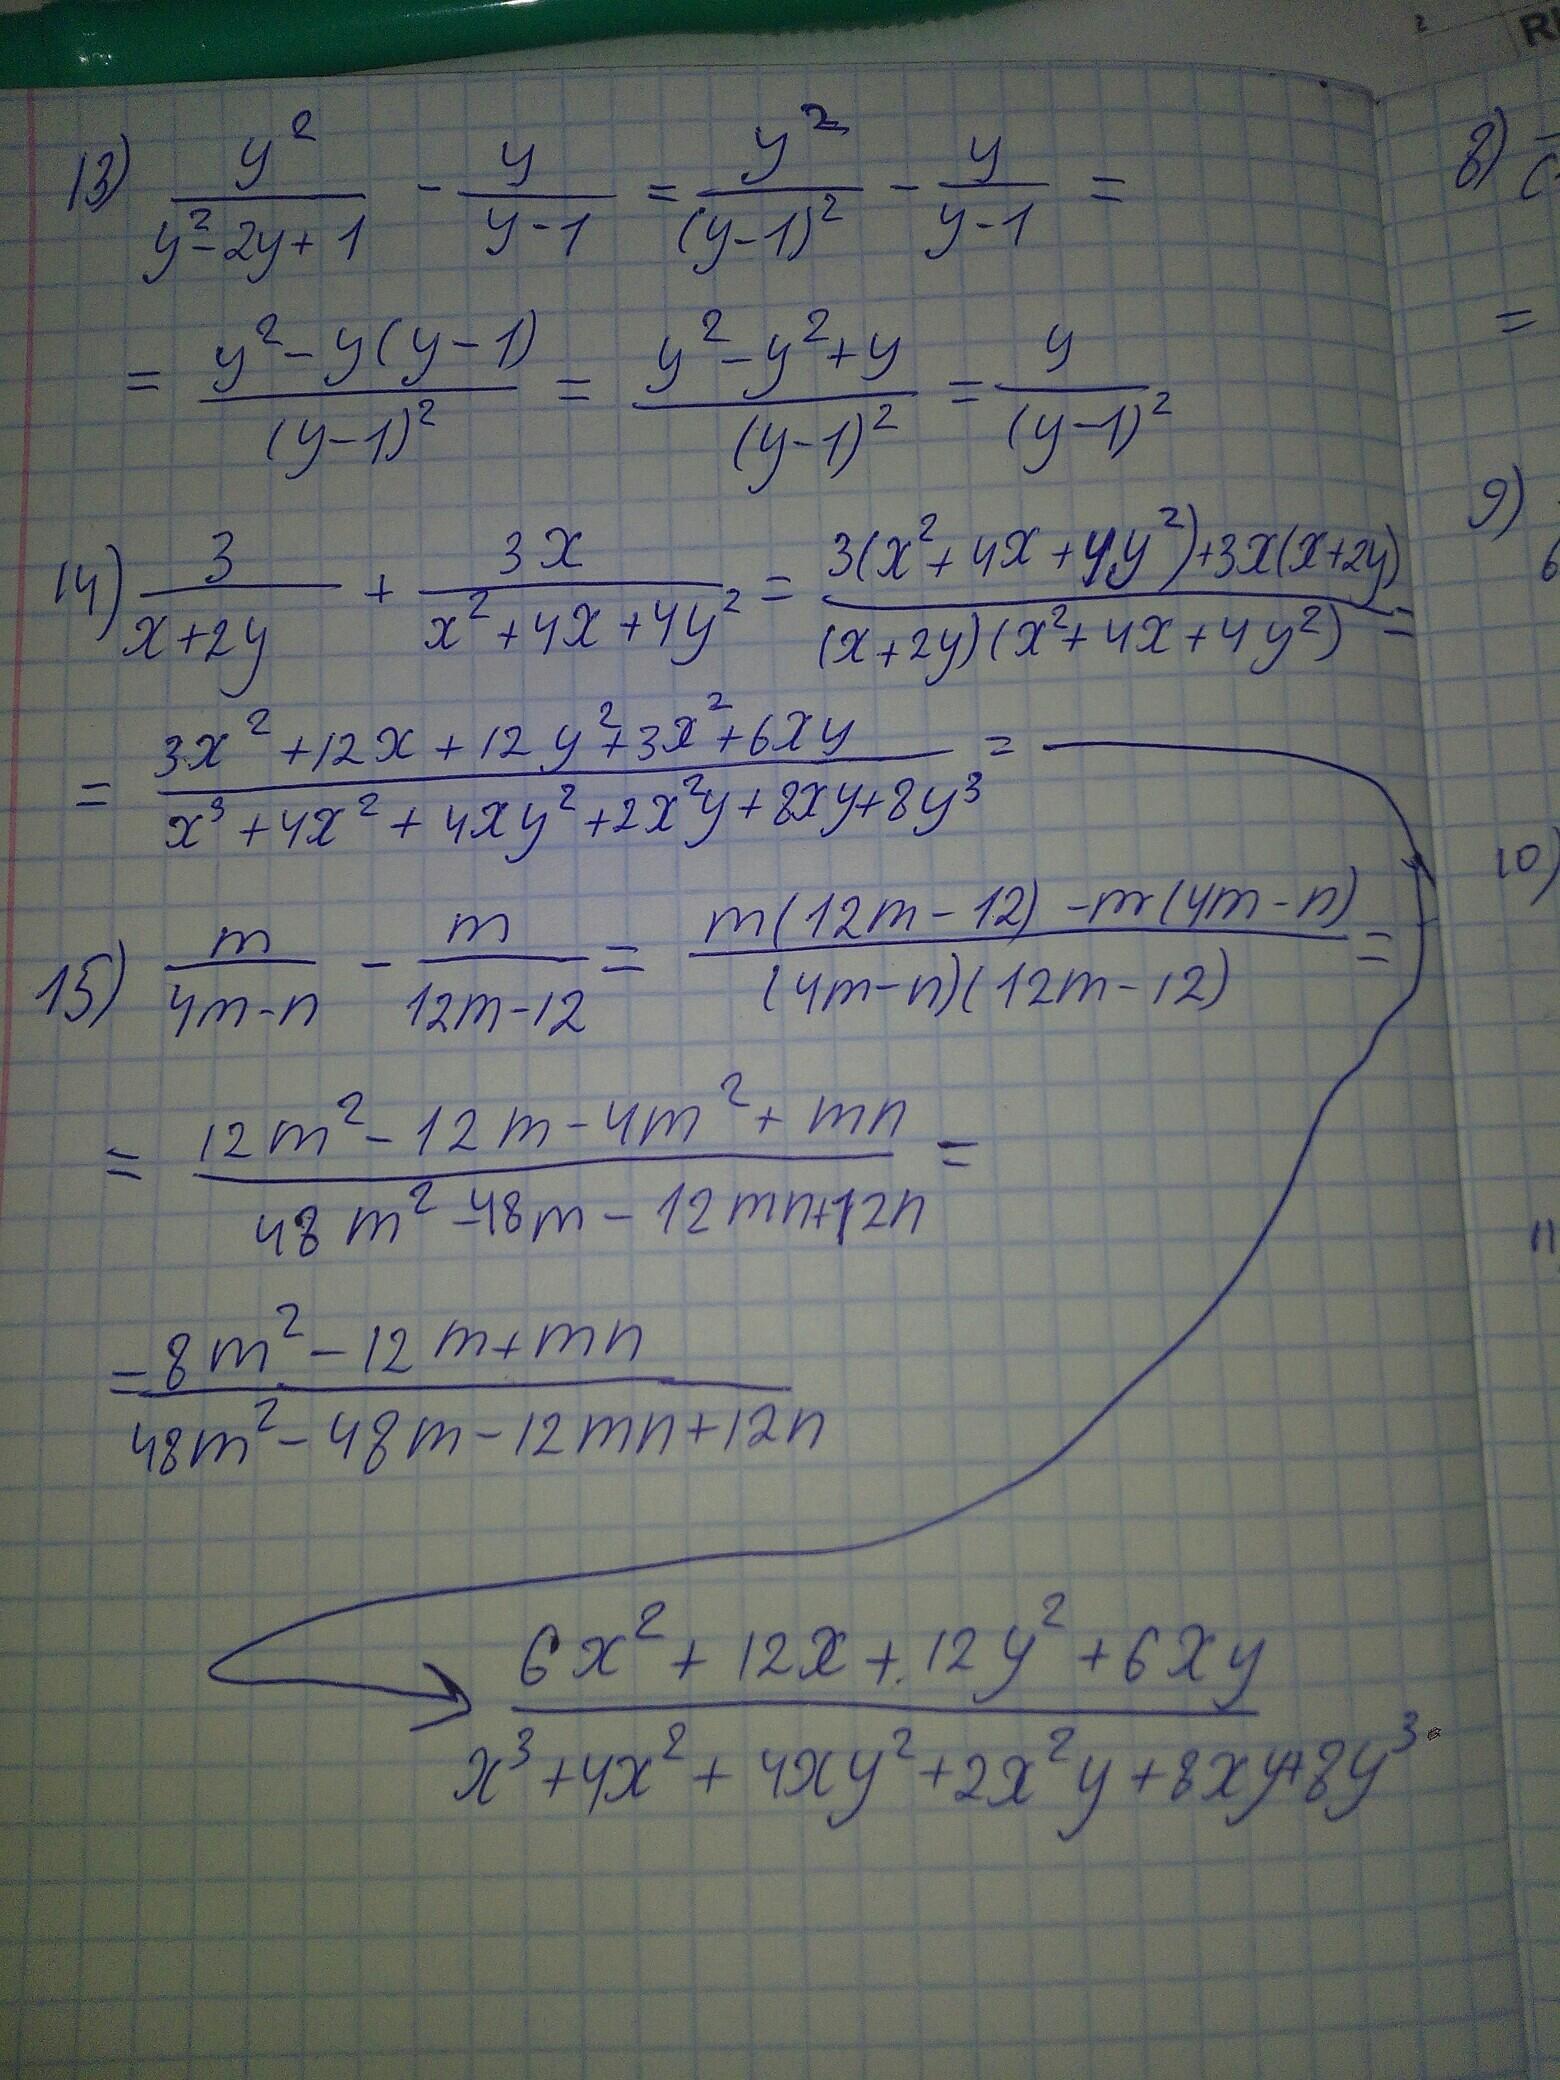 RI
13) y²/(y²-2y+1) - y/(y-1) = y²/(y-1)² - y/(y-1) =
= (y²-y(y-1))/(y-1)² = (y²-y²+y)/(y-1)² = y/(y-1)²
14) 3/(x+2y) + 3x/(x²+4x+4y²) = (3(x²+4x+4y²)+3x(x+2y))/((x+2y)(x²+4x+4y²)) =
= (3x²+12x+12y²+3x²+6xy)/(x³+4x²+4xy²+2x²y+8xy+8y³) =
15) m/(4m-n) - m/(12m-12) = (m(12m-12)-m(4m-n))/((4m-n)(12m-12)) =
= (12m²-12m-4m²+mn)/(48m²-48m-12mn+12n) =
= (8m²-12m+mn)/(48m²-48m-12mn+12n)
(6x²+12x+12y²+6xy)/(x³+4x²+4xy²+2x²y+8xy+8y³)
8)
=
9)
6
10)
11